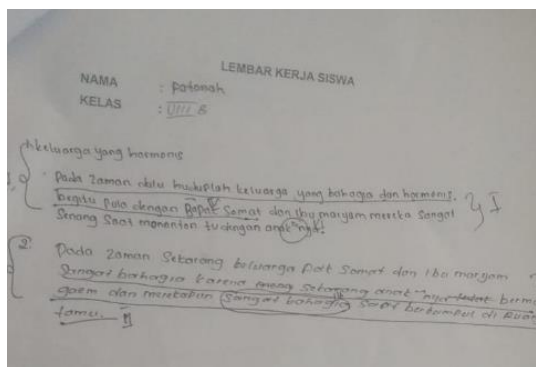 LEMBAR KERJA SISWA
NAMA : Patonah
KELAS : VIII B
keluarga yang harmonis
1. Pada zaman dulu hiduplah keluarga yang bahagia dan harmonis.
begitu pula dengan Bapak Somat dan ibu maryam mereka sangat
Senang Saat menonton tv dengan anak"nya. I
2. Pada zaman Sekarang keluarga Pak Somat dan Ibu maryam
Sangat bahagia karena Sekarang anak"nya bermain
gaem dan merekapun Sangat bahagia Saat berkumpul di Ruang
tamu. II